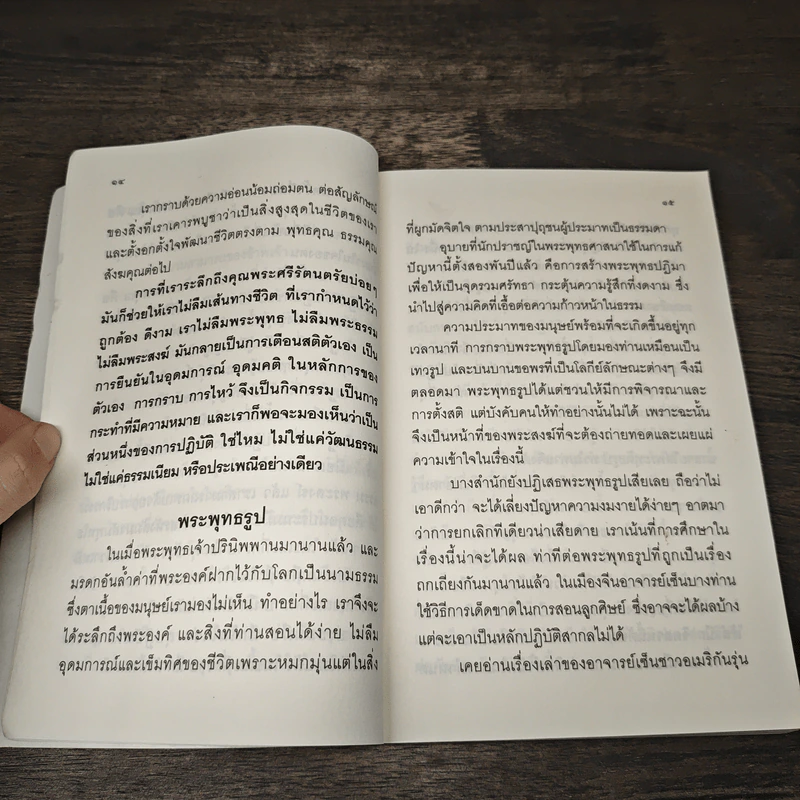 ๑๔
เรากราบด้วยความอ่อนน้อมถ่อมตน ต่อสัญลักษณ์
ของสิ่งที่เราเคารพบูชาว่าเป็นสิ่งสูงสุดในชีวิตของเรา
และตั้งอกตั้งใจพัฒนาชีวิตตรงตาม พุทธคุณ ธรรมคุณ
สังฆคุณต่อไป
การที่เราระลึกถึงคุณพระศรีรัตนตรัยบ่อยๆ
มันก็ช่วยให้เราไม่ลืมเส้นทางชีวิต ที่เรากำหนดไว้ว่า
ถูกต้อง ดีงาม เราไม่ลืมพระพุทธ ไม่ลืมพระธรรม
ไม่ลืมพระสงฆ์ มันกลายเป็นการเตือนสติตัวเอง เป็น
การยืนยันในอุดมการณ์ อุดมคติ ในหลักการของ
ตัวเอง การกราบ การไหว้ จึงเป็นกิจกรรม เป็นการ
กระทำที่มีความหมาย และเราก็พอจะมองเห็นว่าเป็น
ส่วนหนึ่งของการปฏิบัติ ใช่ไหม ไม่ใช่แค่วัฒนธรรม
ไม่ใช่แค่ธรรมเนียม หรือประเพณีอย่างเดียว
พระพุทธรูป
ในเมื่อพระพุทธเจ้าปรินิพพานมานานแล้ว และ
มรดกอันล้ำค่าที่พระองค์ฝากไว้กับโลกเป็นนามธรรม
ซึ่งตาเนื้อของมนุษย์เรามองไม่เห็น ทำอย่างไร เราจึงจะ
ได้ระลึกถึงพระองค์ และสิ่งที่ท่านสอนได้ง่าย ไม่ลืม
อุดมการณ์และเข็มทิศของชีวิตเพราะหมกมุ่นแต่ในสิ่ง
๑๕
ที่ผูกมัดจิตใจ ตามประสาปุถุชนผู้ประมาทเป็นธรรมดา
อุบายที่นักปราชญ์ในพระพุทธศาสนาใช้ในการแก้
ปัญหานี้ตั้งสองพันปีแล้ว คือการสร้างพระพุทธปฏิมา
เพื่อให้เป็นจุดรวมศรัทธา กระตุ้นความรู้สึกที่งดงาม ซึ่ง
นำไปสู่ความคิดที่เอื้อต่อความก้าวหน้าในธรรม
ความประมาทของมนุษย์พร้อมที่จะเกิดขึ้นอยู่ทุก
เวลานาที การกราบพระพุทธรูปโดยมองท่านเหมือนเป็น
เทวรูป และบนบานขอพรที่เป็นโลกีย์ลักษณะต่างๆ จึงมี
ตลอดมา พระพุทธรูปได้แต่ชวนให้มีการพิจารณาและ
การตั้งสติ แต่บังคับคนให้ทำอย่างนั้นไม่ได้ เพราะฉะนั้น
จึงเป็นหน้าที่ของพระสงฆ์ที่จะต้องถ่ายทอดและเผยแผ่
ความเข้าใจในเรื่องนี้
บางสำนักยังปฏิเสธพระพุทธรูปเสียเลย ถือว่าไม่
เอาดีกว่า จะได้เลี่ยงปัญหาความงมงายได้ง่ายๆ อาตมา
ว่าการยกเลิกทีเดียวน่าเสียดาย เราเน้นที่การศึกษาใน
เรื่องนี้น่าจะได้ผล ท่าทีต่อพระพุทธรูปที่ถูกเป็นเรื่อง
ถกเถียงกันมานานแล้ว ในเมืองจีนอาจารย์เซ็นบางท่าน
ใช้วิธีการเด็ดขาดในการสอนลูกศิษย์ ซึ่งอาจจะได้ผลบ้าง
แต่จะเอาเป็นหลักปฏิบัติสากลไม่ได้
เคยอ่านเรื่องเล่าของอาจารย์เซ็นชาวอเมริกันรุ่น